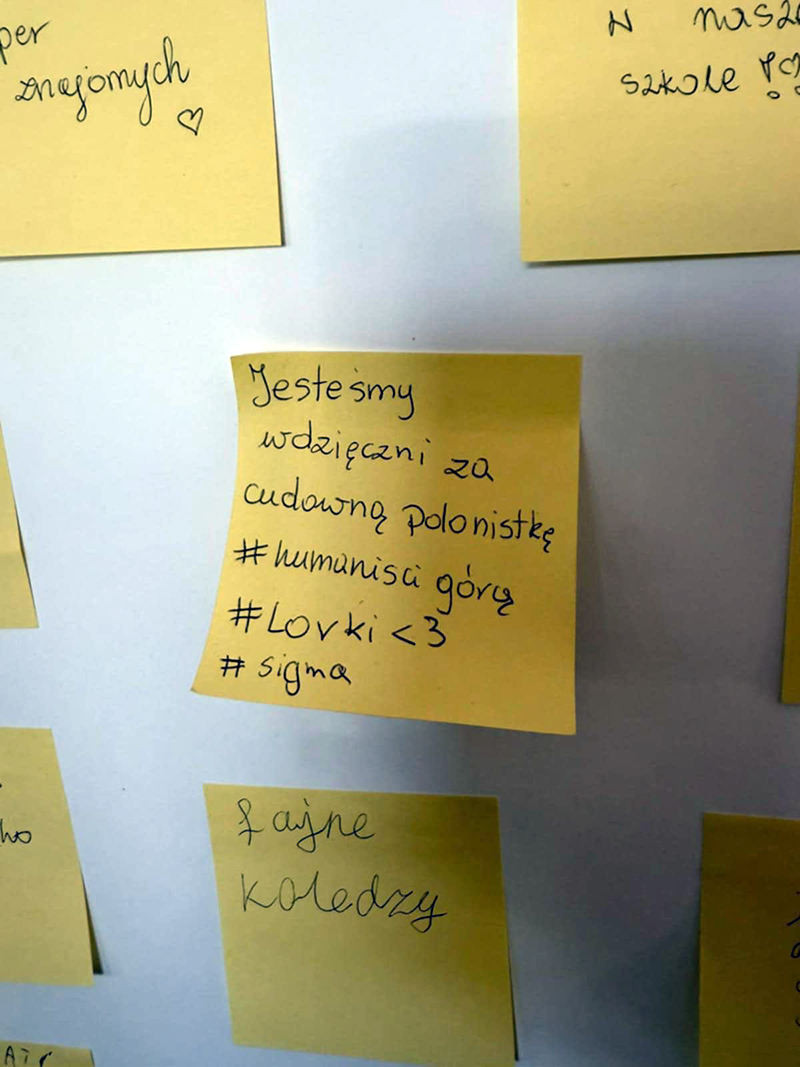 znajomych ♡
w
szkole
Jesteśmy
wdzięczni za
cudowną polonistkę
#humanisci górą
#Lovki <3
# sigma
fajne
koledzy